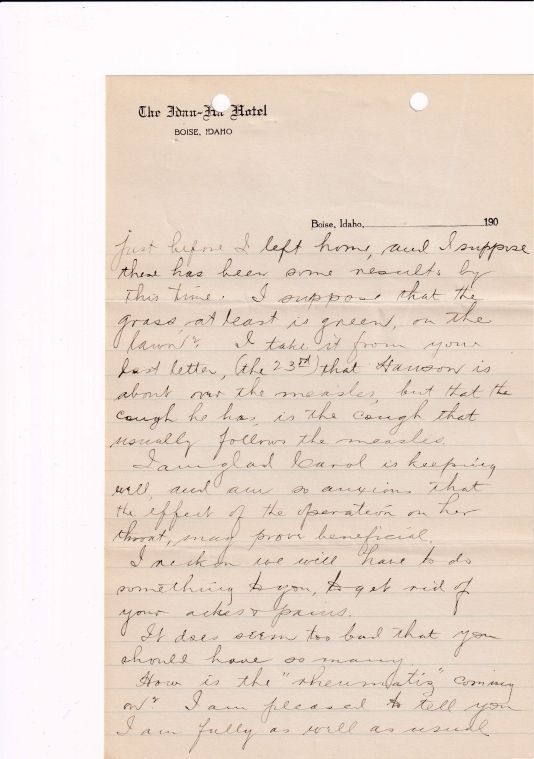 The Idan-Ha Hotel
BOISE, IDAHO
Boise, Idaho, 190
just before I left home, and I suppose
there has been some results by
this time. I suppose that the
grass at least is green, on the
lawn? I take it from your
last letter, (the 23rd) that Hanson is
about over the measles, but that the
cough he has, is the cough that
usually follows the measles.
I am glad Karol is keeping
well, and am so anxious that
the effect of the operation on her
throat, may prove beneficial.
I reckon we will have to do
something to you, to get rid of
your aches & pains.
It does seem too bad that you
should have so many
How is the "rheumatiz" coming
on? I am pleased to tell you
I am fully as well as usual